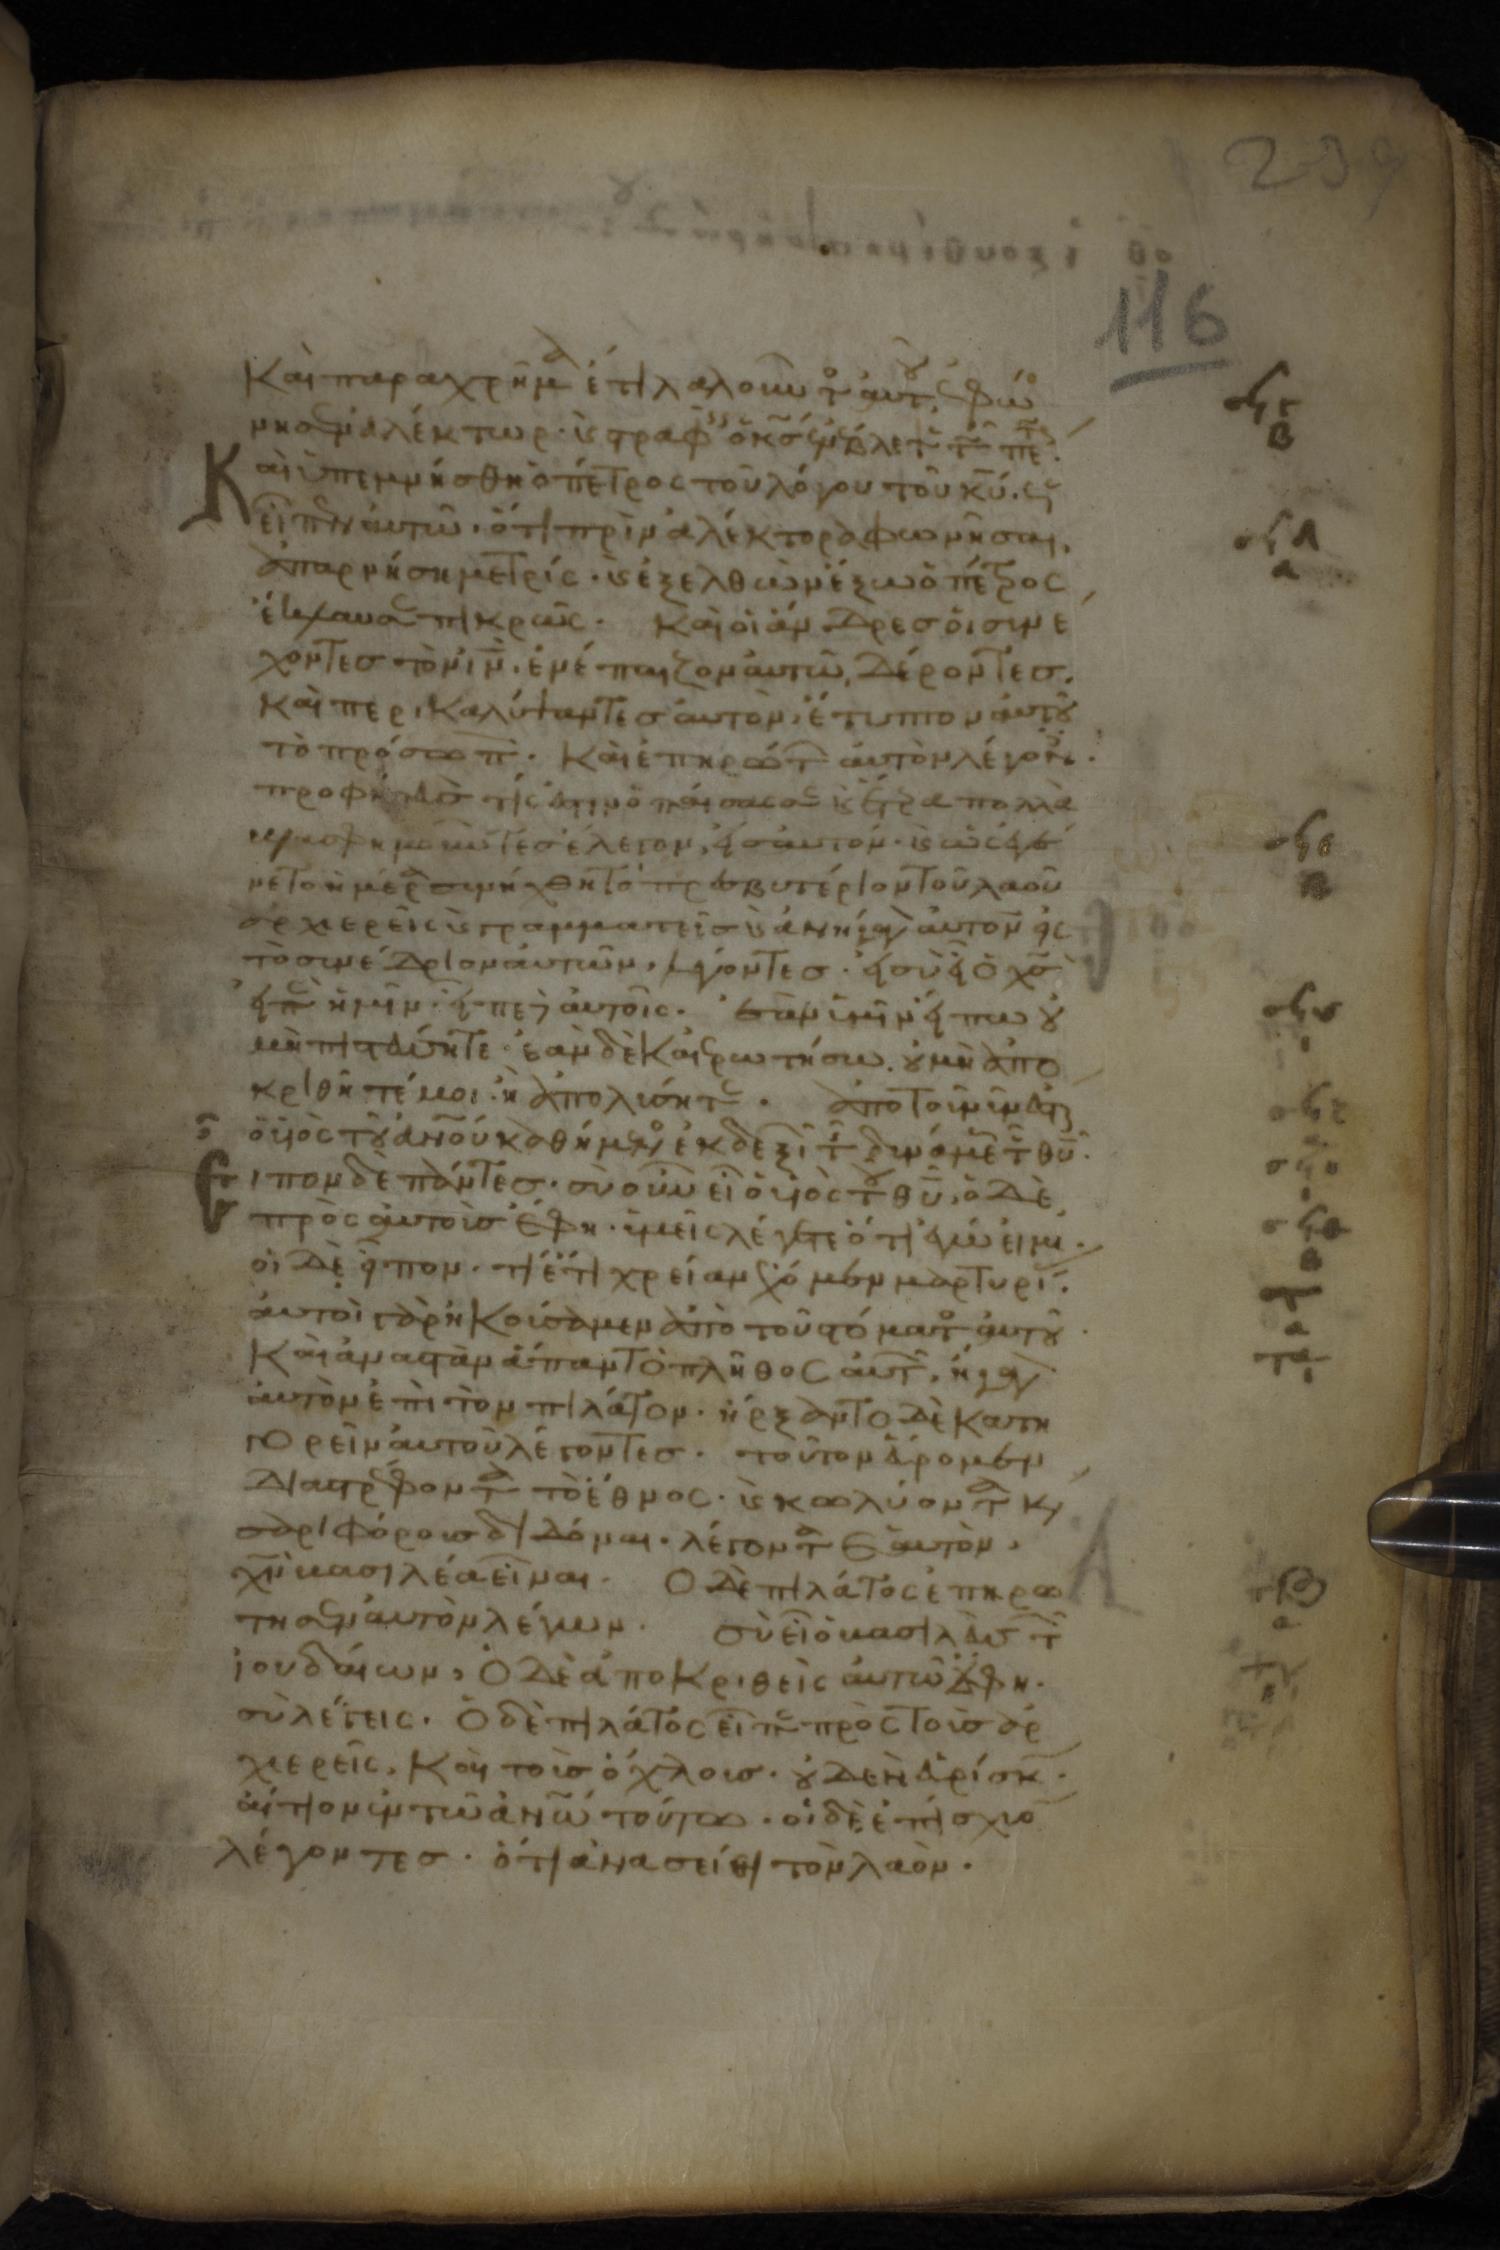 239
116
Καὶ παραχρῆμα ἔτι λαλοῦντος αὐτοῦ, ἐφώ
νησεν ἀλέκτωρ · καὶ στραφεὶς ὁ κς ἐνέβλεψεν τῷ πέτρῳ ·
Καὶ ὑπεμνήσθη ὁ πέτρος τοῦ λόγου τοῦ κυ. ὡς
εἶπεν αὐτῶ · ὅτι πρὶν ἀλέκτορα φωνῆσαι,
ἀπαρνήση με τρίς · καὶ ἐξελθὼν ἔξω ὁ πέτρος
ἔκλαυσεν πικρῶς · Καὶ οἱ ἄνδρες οἱ συνέ
χοντες τὸν ιν, ἐνέπαιζον αὐτῶ, δέροντες.
Καὶ περικαλύψαντες αὐτὸν, ἔτυπτον αὐτοῦ
τὸ πρόσωπον · Καὶ ἐπηρώτων αὐτὸν λέγοντες ·
προφήτευσον τίς ἐστιν ὁ παίσας σε καὶ ἕτερα πολλὰ
βλασφημοῦντες ἔλεγον, εἰς αὐτόν · καὶ ὡς ἐγέ
νετο ἡμέρα συνήχθη τὸ πρεσβυτέριον τοῦ λαοῦ
ἀρχιερεῖς καὶ γραμματεῖς καὶ ἀνήγαγον αὐτὸν εἰς
τὸ συνέδριον αὐτῶν, λέγοντες · εἰ σὺ εἶ ὁ χς
εἰπὲ ἡμῖν · εἶπεν αὐτοῖς · ἐὰν ὑμῖν εἴπω οὐ
μὴ πιστεύσητε · ἐὰν δὲ καὶ ἐρωτήσω, οὐ μὴ ἀπο
κριθῆτέ μοι ἢ ἀπολύσητε · ἀπὸ τοῦ νῦν ἔσται
ὁ υἱὸς τοῦ ἀνου καθήμενος ἐκ δεξιῶν τῆς δυνάμεως τοῦ θυ ·
Εἶπον δὲ πάντες · σὺ οὖν εἶ ὁ υἱὸς τοῦ θυ, ὁ δὲ
πρὸς αὐτοὺς ἔφη · ὑμεῖς λέγετε ὅτι ἐγώ εἰμι ·
οἱ δὲ εἶπον · τί ἔτι χρείαν ἔχομεν μαρτυρίας ·
αὐτοὶ γὰρ ἠκούσαμεν ἀπὸ τοῦ στόματος αὐτοῦ ·
Καὶ ἀναστὰν ἅπαν τὸ πλῆθος αὐτῶν, ἤγαγον
αὐτὸν ἐπὶ τὸν πιλάτον · ἤρξαντο δὲ κατη
γορεῖν αὐτοῦ λέγοντες · τοῦτον εὕρομεν
διαστρέφοντα τὸ ἔθνος · καὶ κωλύοντα και
σαρι φόρους διδόναι · λέγοντα ἑαυτὸν,
χν βασιλέα εἶναι · Ὁ δὲ πιλάτος ἐπηρώ
τησεν αὐτὸν λέγων · σὺ εἶ ὁ βασιλεὺς τῶν
ἰουδαίων, Ὁ δὲ ἀποκριθεὶς αὐτῶ ἔφη ·
σὺ λέγεις · Ὁ δὲ πιλάτος εἶπεν πρὸς τοὺς ἀρ
χιερεῖς, Καὶ τοὺς ὄχλους · οὐδὲν εὑρίσκω
αἴτιον ἐν τῶ ἀνω τούτω · οἱ δὲ ἐπίσχυον
λέγοντες · ὅτι ἀνασείει τὸν λαὸν ·